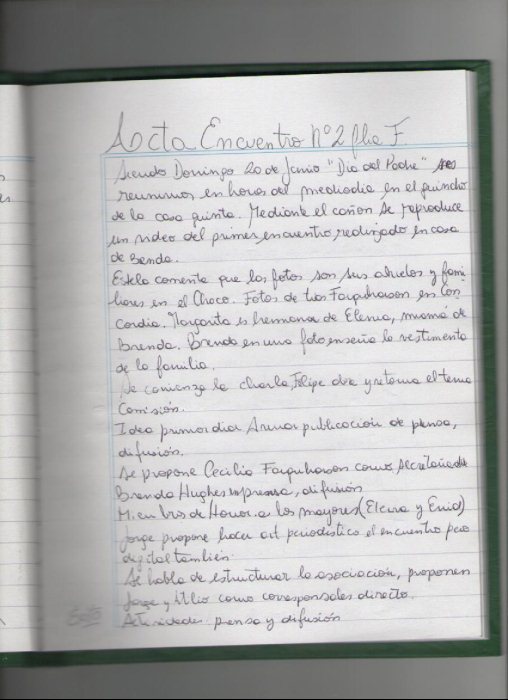 Acta Encuentro Nº2 flia F.
Siendo Domingo 20 de Junio "Dia del Padre" nos
reunimos en horas del mediodia en el quincho
de la casa quinta. Mediante el cañon se reproduce
un video del primer encuentro, realizado en casa
de Brenda.
Estela comenta que las fotos son sus abuelos y fami
liares en el Chaco. Fotos de tias Farquharson en Con
cordia. Margarita es hermana de Elena, mamá de
Brenda. Brenda en una foto enseña la vestimenta
de la familia.
Se comienza la charla, Felipe abre y retoma el tema
Comisión.
Idea primordial Armar publicación de prensa,
difusión.
Se propone Cecilia Farquharson como secretaria de
Brenda Hughes prensa, difusión
Miembros de Honor a los mayores (Elena y Enid)
Jorge propone hacer art periodistico el encuentro pero
digital también.
Se habla de estructurar la asociación, proponen
Jorge y Atilio como corresponsales directo.
Actividades prensa y difusión